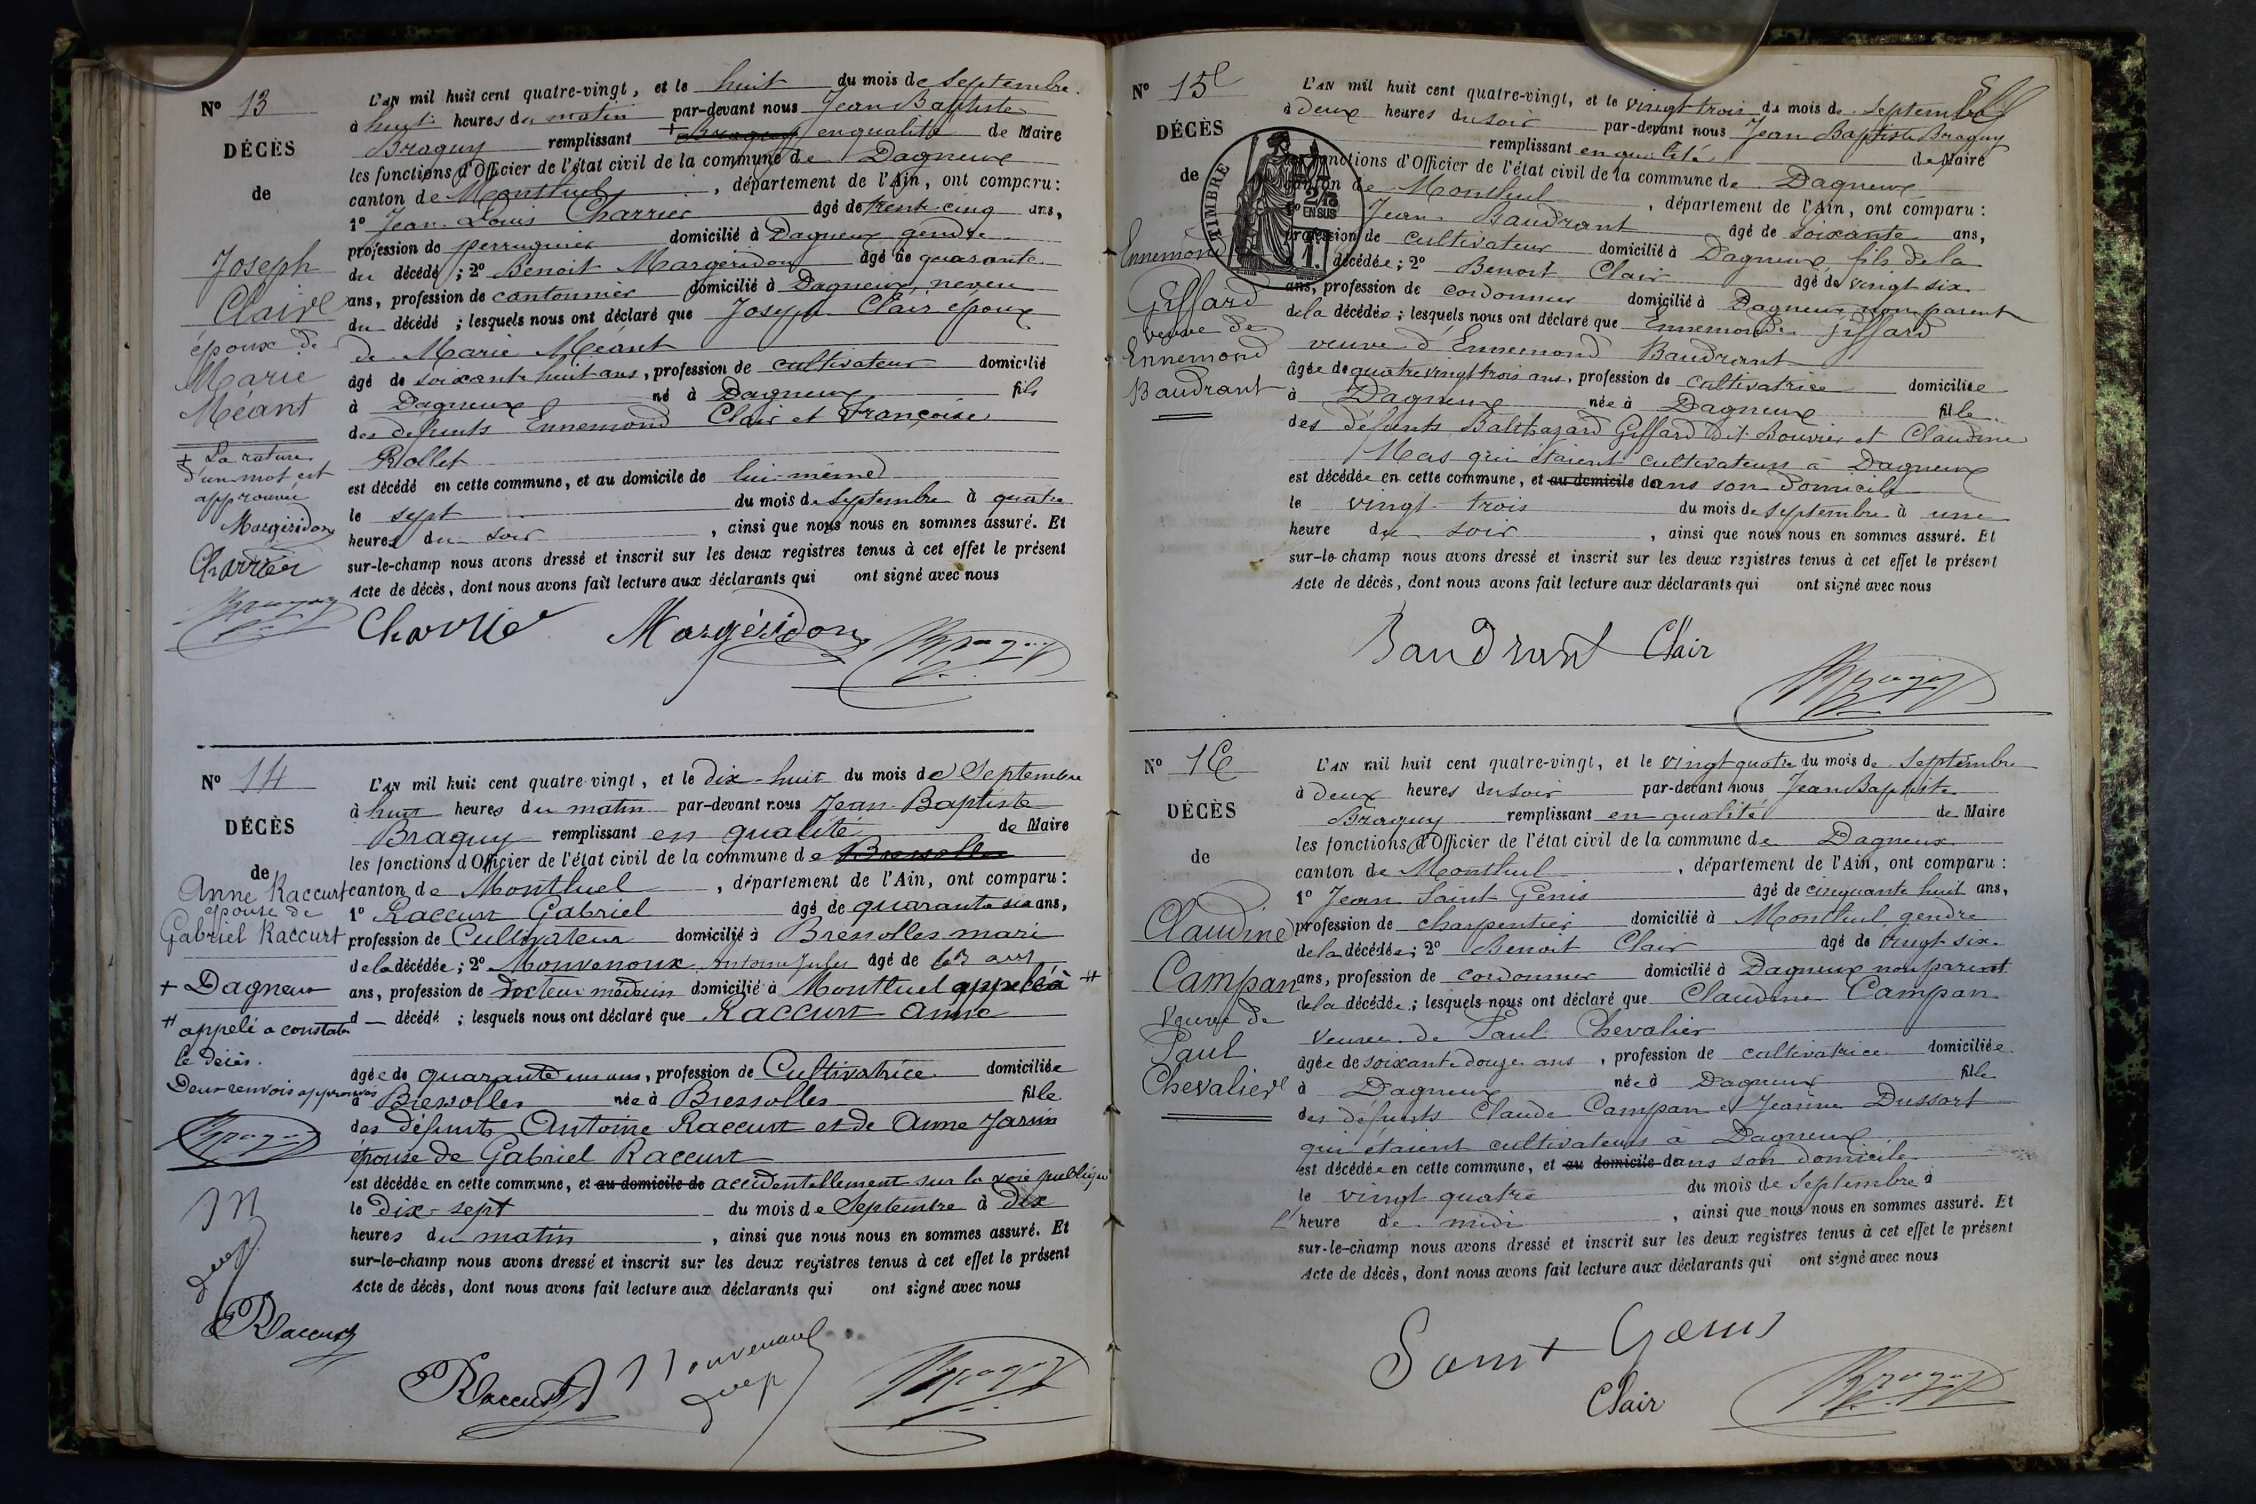 Nº 13
DÉCÈS
de
Joseph
Clair
époux de
Marie
Méant
+ La rature
d'un mot est
approuvée
Margéridon
Charrier
L'AN mil huit cent quatre-vingt, et le huit du mois de Septembre
à huit heures du matin par-devant nous Jean Baptiste
Braguy remplissant + en qualité de Maire
les fonctions d'Officier de l'état civil de la commune de Dagneux
canton de Montluel, département de l'Ain, ont comparu :
1º Jean Louis Charrier âgé de trente cinq ans,
profession de perruquier domicilié à Dagneux gendre
du décédé ; 2º Benoit Margéridon âgé de quarante
ans, profession de cantonnier domicilié à Dagneux, neveu
du décédé ; lesquels nous ont déclaré que Joseph Clair époux
de Marie Méant
âgé de soixante huit ans, profession de cultivateur domicilié
à Dagneux né à Dagneux fils
des défunts Ennemond Clair et Françoise
Rollet
est décédé en cette commune, et au domicile de lui-même
le sept du mois de Septembre à quatre
heures du soir, ainsi que nous nous en sommes assuré. Et
sur-le-champ nous avons dressé et inscrit sur les deux registres tenus à cet effet le présent
Acte de décès, dont nous avons fait lecture aux déclarants qui ont signé avec nous
Charrier Margéridon Braguy
Nº 14
DÉCÈS
de
Anne Raccurt
épouse de
Gabriel Raccurt
+ Dagneux
# appelé a constater
le décès.
Deux renvois approuvés
Raccurt
L'AN mil huit cent quatre-vingt, et le dix-huit du mois de Septembre
à huit heures du matin par-devant nous Jean-Baptiste
Braguy remplissant en qualité de Maire
les fonctions d'Officier de l'état civil de la commune de Bressolles
canton de Montluel, département de l'Ain, ont comparu :
1º Raccurt Gabriel âgé de quarante six ans,
profession de Cultivateur domicilié à Bressolles mari
de la décédée ; 2º Monvenoux Antoine Jules âgé de 63 ans
ans, profession de docteur médecin domicilié à Montluel appelé à #
d — décédé ; lesquels nous ont déclaré que Raccurt Anne
âgée de quarante un ans, profession de Cultivatrice domiciliée
à Bressolles née à Bressolles fille
des défunts Antoine Raccurt et de Anne Jarin
épouse de Gabriel Raccurt
est décédée en cette commune, et au domicile de accidentellement sur la voie publique
le Dix-sept du mois de Septembre à Dix
heures du matin, ainsi que nous nous en sommes assuré. Et
sur-le-champ nous avons dressé et inscrit sur les deux registres tenus à cet effet le présent
Acte de décès, dont nous avons fait lecture aux déclarants qui ont signé avec nous
Raccurt Monvenoux Braguy
Nº 15
DÉCÈS
de
TIMBRE
2/10
EN SUS
1.
Ennemond
Giffard
veuve de
Ennemond
Baudrant
L'AN mil huit cent quatre-vingt, et le vingt trois du mois de Septembre
à deux heures du soir par-devant nous Jean Baptiste Braguy
remplissant en qualité de Maire
les fonctions d'Officier de l'état civil de la commune de Dagneux
canton de Montluel, département de l'Ain, ont comparu :
1º Jean Baudrant âgé de soixante ans,
profession de cultivateur domicilié à Dagneux fils de la
décédée ; 2º Benoit Clair âgé de vingt six
ans, profession de cordonnier domicilié à Dagneux non parent
de la décédée ; lesquels nous ont déclaré que Ennemonde Giffard
veuve d'Ennemond Baudrant
âgée de quatre vingt trois ans, profession de cultivatrice domiciliée
à Dagneux née à Dagneux fille
des défunts Balthazard Giffard dit Bouvier et Claudine
Mas qui étaient cultivateurs à Dagneux
est décédée en cette commune, et au domicile dans son domicile
le vingt-trois du mois de Septembre à une
heure du soir, ainsi que nous nous en sommes assuré. Et
sur-le-champ nous avons dressé et inscrit sur les deux registres tenus à cet effet le présent
Acte de décès, dont nous avons fait lecture aux déclarants qui ont signé avec nous
Baudrant Clair
Braguy
Nº 16
DÉCÈS
de
Claudine
Campan
Veuve de
Paul
Chevalier
L'AN mil huit cent quatre-vingt, et le vingt quatre du mois de Septembre
à deux heures du soir par-devant nous Jean Baptiste
Braguy remplissant en qualité de Maire
les fonctions d'Officier de l'état civil de la commune de Dagneux
canton de Montluel, département de l'Ain, ont comparu :
1º Jean Saint Genis âgé de cinquante huit ans,
profession de charpentier domicilié à Montluel gendre
de la décédée ; 2º Benoit Clair âgé de vingt-six
ans, profession de cordonnier domicilié à Dagneux non parent
de la décédée ; lesquels nous ont déclaré que Claudine Campan
veuve de Paul Chevalier
âgée de soixante douze ans, profession de cultivatrice domiciliée
à Dagneux née à Dagneux fille
des défunts Claude Campan et Jeanne Dussort
qui étaient cultivateurs à Dagneux
est décédée en cette commune, et au domicile dans son domicile
le vingt quatre du mois de Septembre à
l'heure de midi, ainsi que nous nous en sommes assuré. Et
sur-le-champ nous avons dressé et inscrit sur les deux registres tenus à cet effet le présent
Acte de décès, dont nous avons fait lecture aux déclarants qui ont signé avec nous
Saint Genis
Clair Braguy